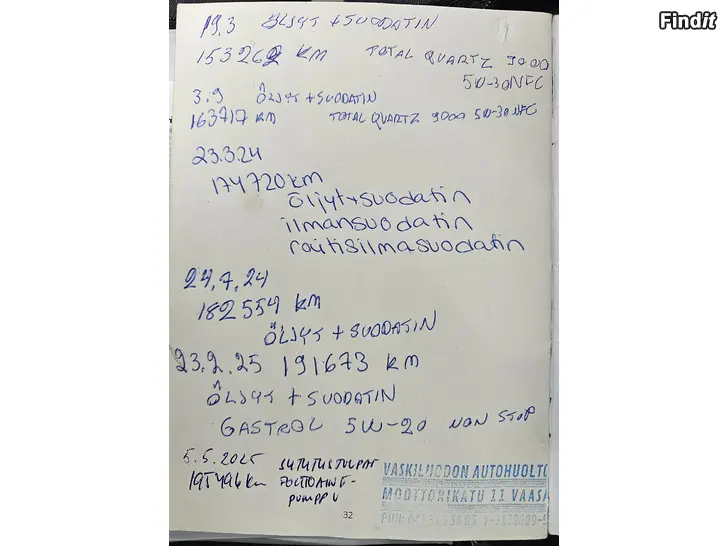 Findit
19.3 ÖLJYT + SUODATIN
153262 KM TOTAL QUARTZ 9000
5W-30 NFC
3.9 ÖLJYT + SUODATIN
163717 KM TOTAL QUARTZ 9000 5W-30 NFC
23.3.24
174720 km
öljyt+suodatin
ilmansuodatin
raitisilmasuodatin
24.7.24
182554 KM
ÖLJYT + SUODATIN
23.2.25 191673 KM
ÖLJYT + SUODATIN
CASTROL 5W-20 NON STOP
5.5.2025 SYTYTUSTULPAT
195496 km POLTTOAINE-
PUMPPU
VASKILUODON AUTOHUOLTO
MOOTTORIKATU 11 VAASA
32